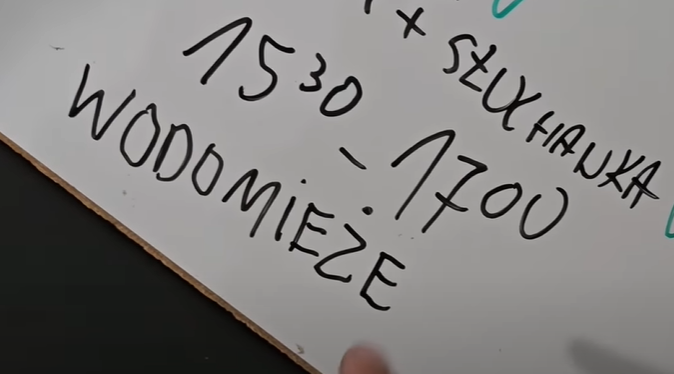 + SŁUCHAWKA
15³⁰ - 17⁰⁰
WODOMIEŻE